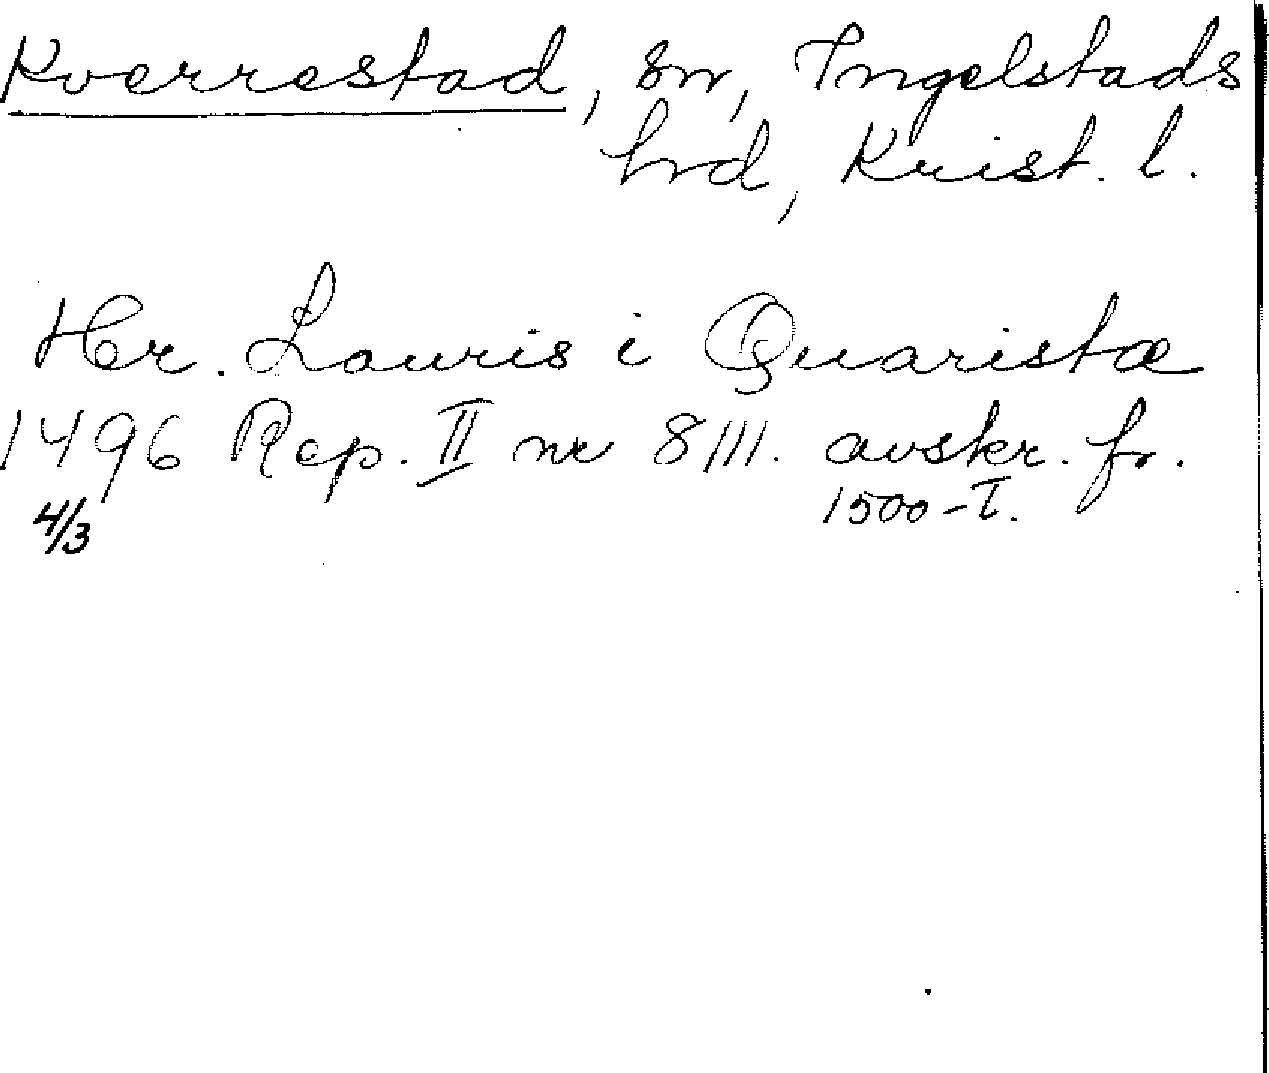 Kverrestad, sn, Ingelstads
hrd, Krist. l.
Her. Lauris i Quaristæ
1496 Rep. II nr 8111. avskr. fr.
4/3 1500-T.